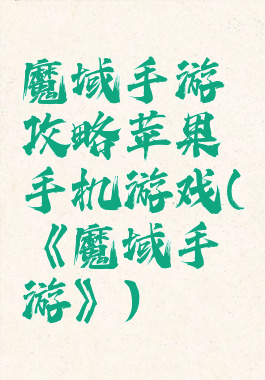 魔域手游
攻略苹果
手机游戏(
《魔域手
游》)